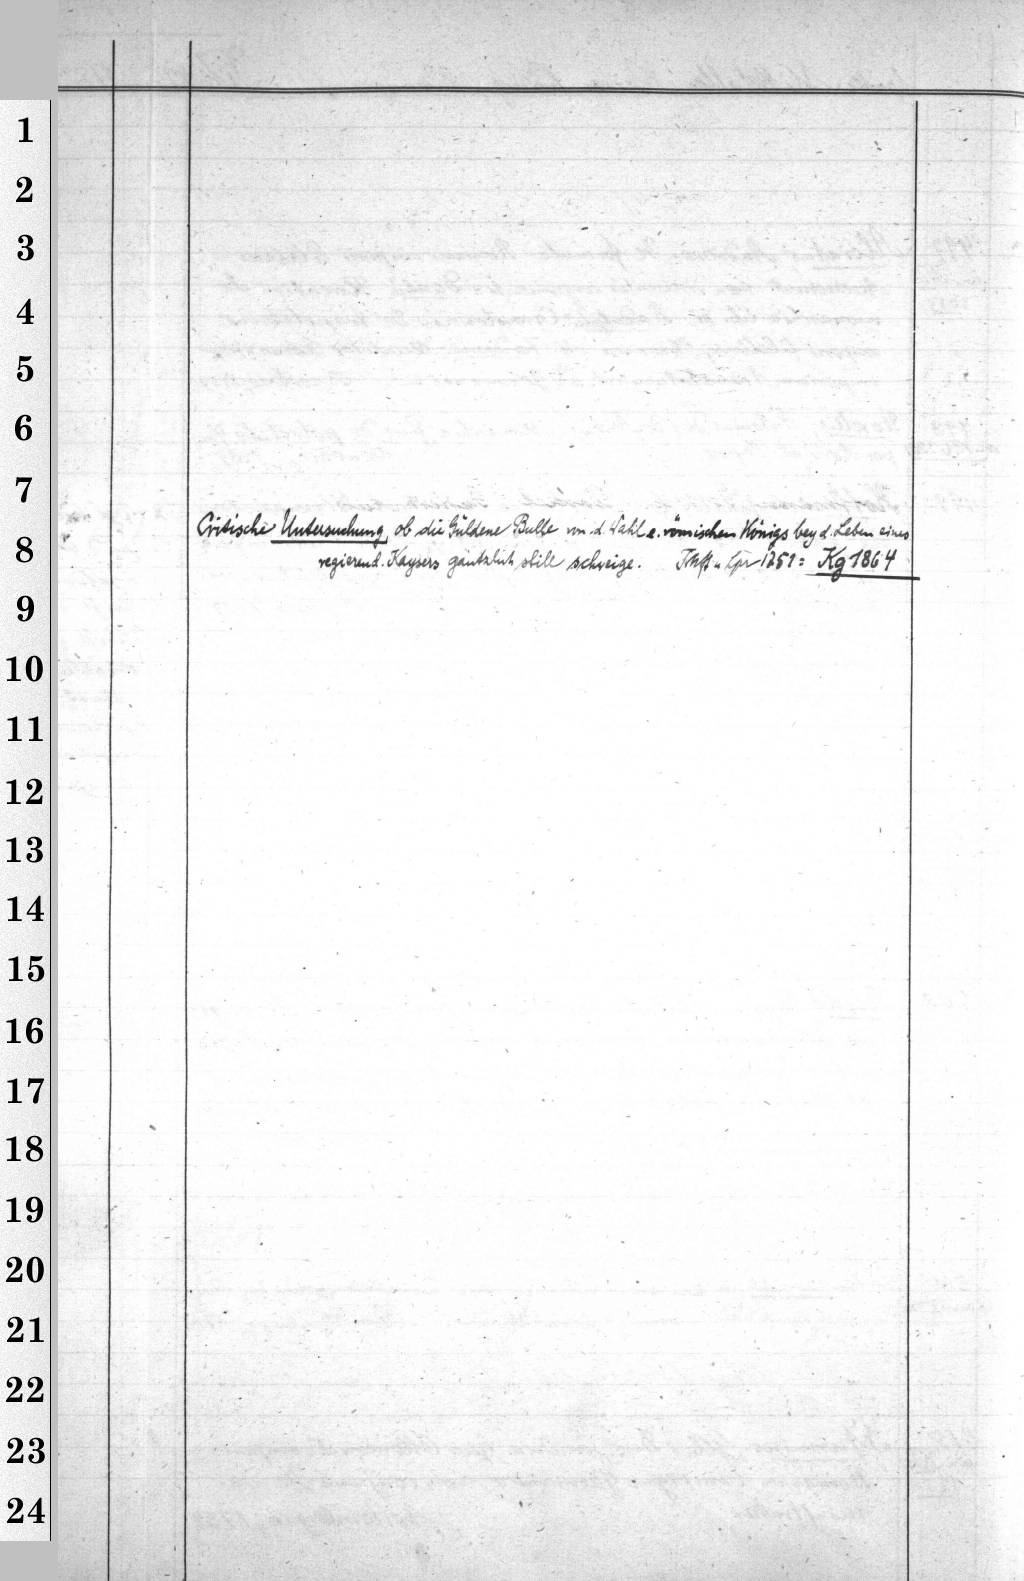 1
2
3
4
5
6
7
Critische Untersuchung, ob die Güldene Bulle von d. Wahl e. römischen Königs bey d. Leben eines
8
regierend. Kaysers gäntzlich still schweige. Frkft u. Lpz 1751 = Kg 1864
9
10
11
12
13
14
15
16
17
18
19
20
21
22
23
24